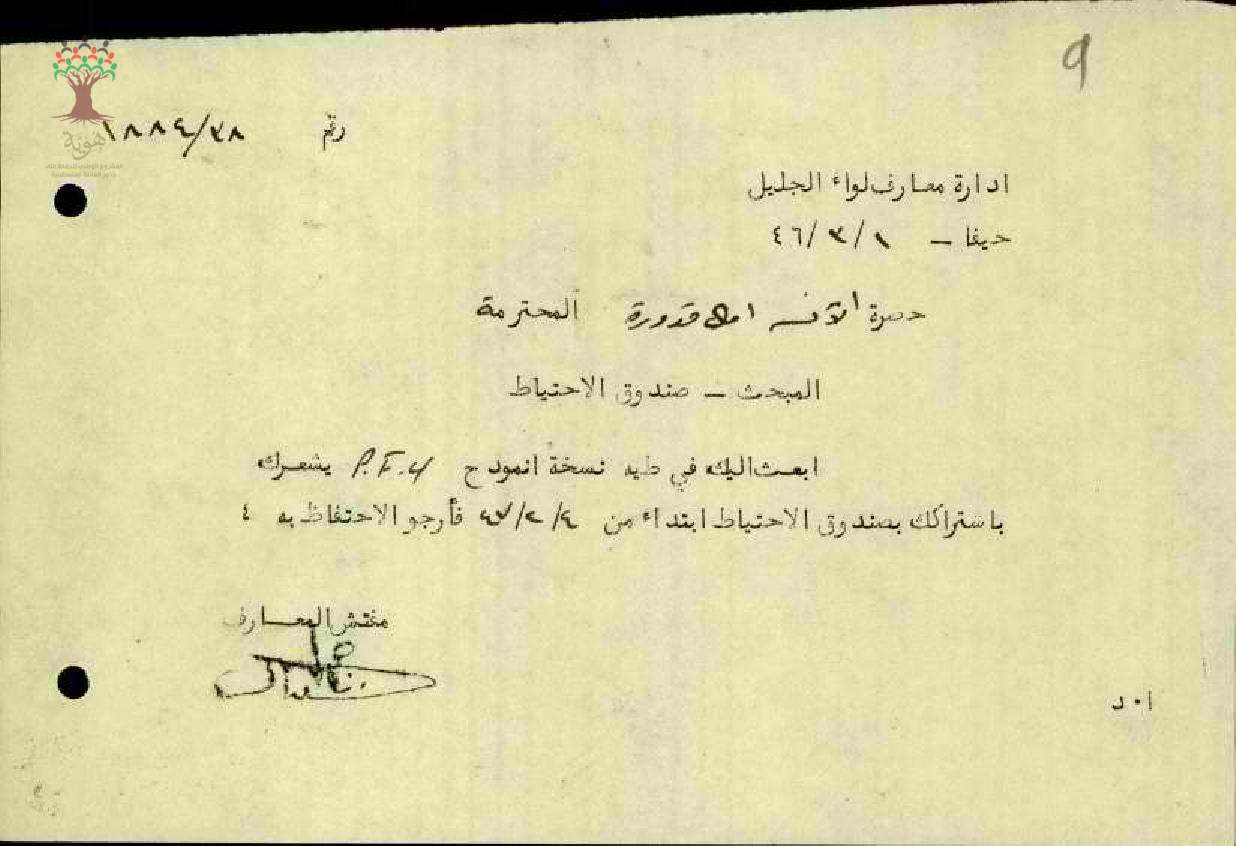 ٩
هوية
المشروع الوطني للحفاظ على
جذور العائلة الفلسطينية
رقم ١٨٨٤/٣٨
ادارة معارف لواء الجليل
حيفا – ١/٣/٤٦
حضرة الآنسه امال قدورة المحترمة
المبحث – صندوق الاحتياط
ابعث اليك في طيه نسخة انموذج P.F.4 يشعرك
باشتراكك بصندوق الاحتياط ابتداء من فأرجو الاحتفاظ به ٤
مفتش المعارف
ا٠د